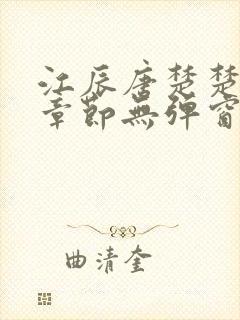 江辰唐楚楚
章節無彈窗
曲清奎